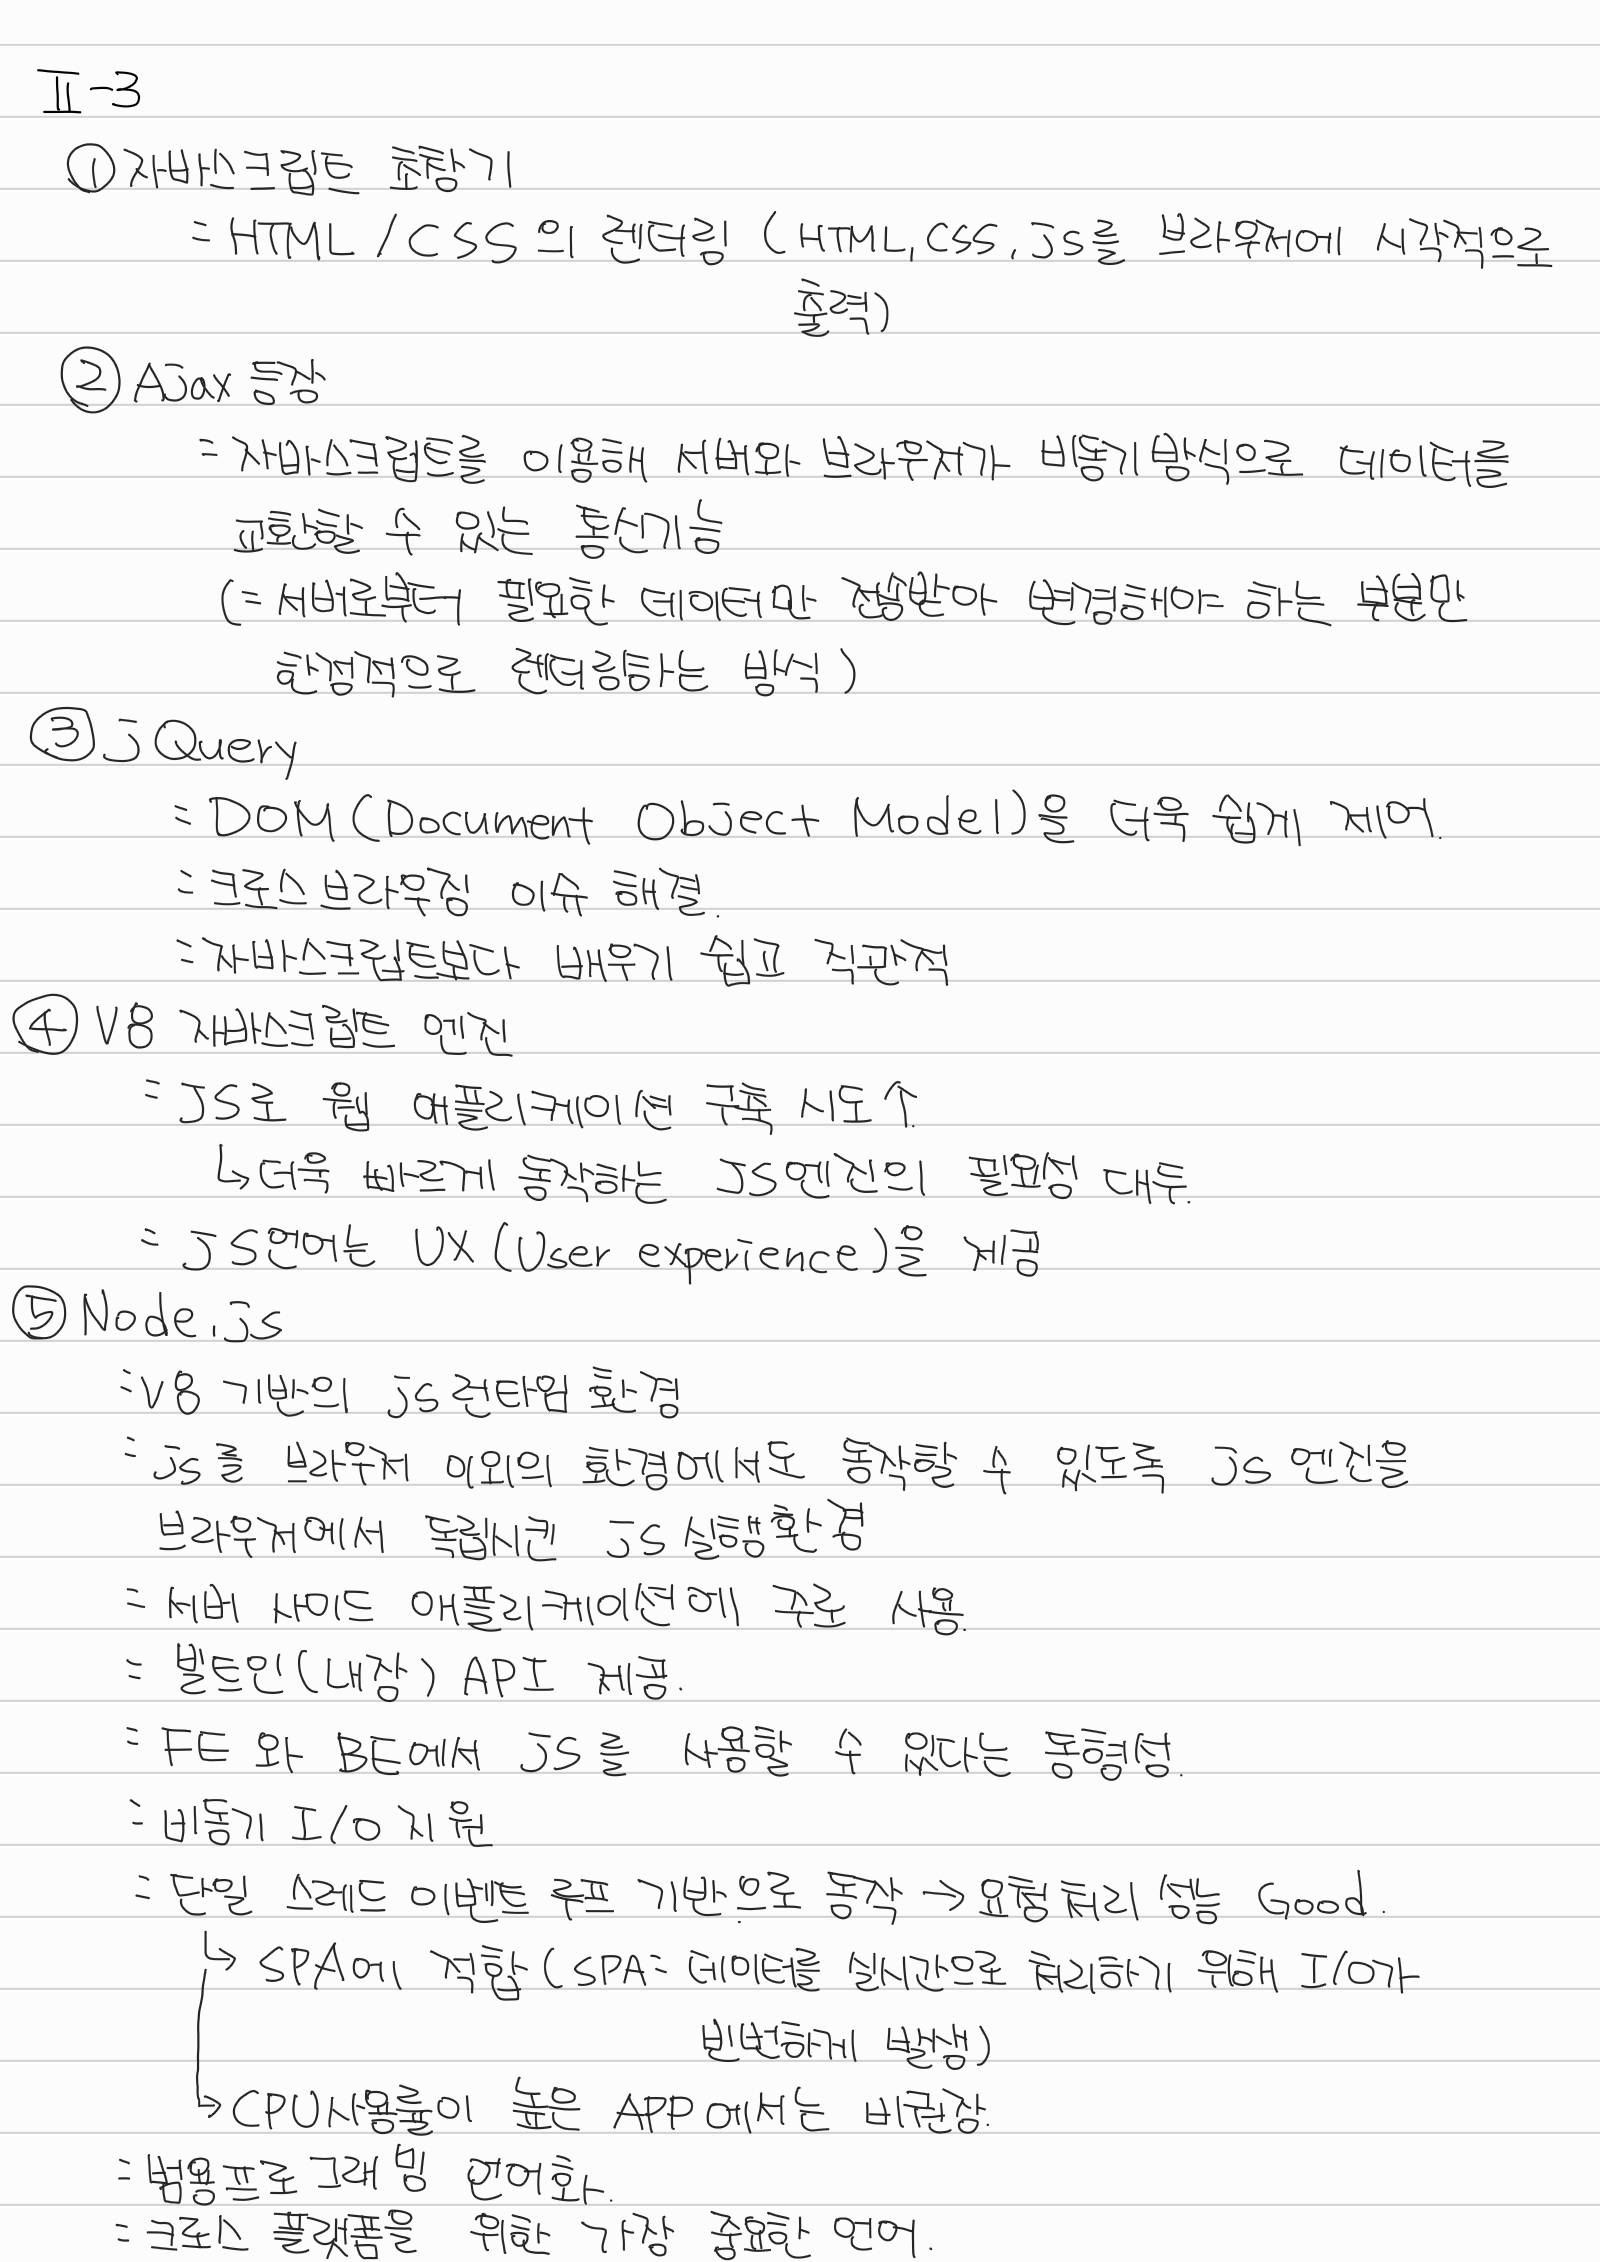 Ⅱ-3
① 자바스크립트 초창기
= HTML / CSS의 렌더링 (HTML, CSS, JS를 브라우저에 시각적으로
출력)
② Ajax 등장
= 자바스크립트를 이용해 서버와 브라우저가 비동기 방식으로 데이터를
교환할 수 있는 통신기능
(= 서버로부터 필요한 데이터만 전송받아 변경해야 하는 부분만
한정적으로 렌더링하는 방식)
③ jQuery
= DOM(Document Object Model)을 더욱 쉽게 제어.
= 크로스 브라우징 이슈 해결.
= 자바스크립트보다 배우기 쉽고 직관적
④ V8 자바스크립트 엔진
= JS로 웹 애플리케이션 구축 시도↑
↳ 더욱 빠르게 동작하는 JS엔진의 필요성 대두.
= JS언어는 UX (User experience)을 제공
⑤ Node.js
= V8 기반의 js 런타임 환경
= js를 브라우저 이외의 환경에서도 동작할 수 있도록 js 엔진을
브라우저에서 독립시킨 js 실행환경
= 서버 사이드 애플리케이션에 주로 사용.
= 빌트인(내장) API 제공.
= FE 와 BE에서 JS를 사용할 수 있다는 동형성.
= 비동기 I/O 지원
= 단일 스레드 이벤트 루프 기반으로 동작 → 요청처리 성능 Good.
↳ SPA에 적합 (SPA = 데이터를 실시간으로 처리하기 위해 I/O가
빈번하게 발생)
↳ CPU사용률이 높은 APP에서는 비권장.
= 범용프로그래밍 언어화.
= 크로스 플랫폼을 위한 가장 중요한 언어.